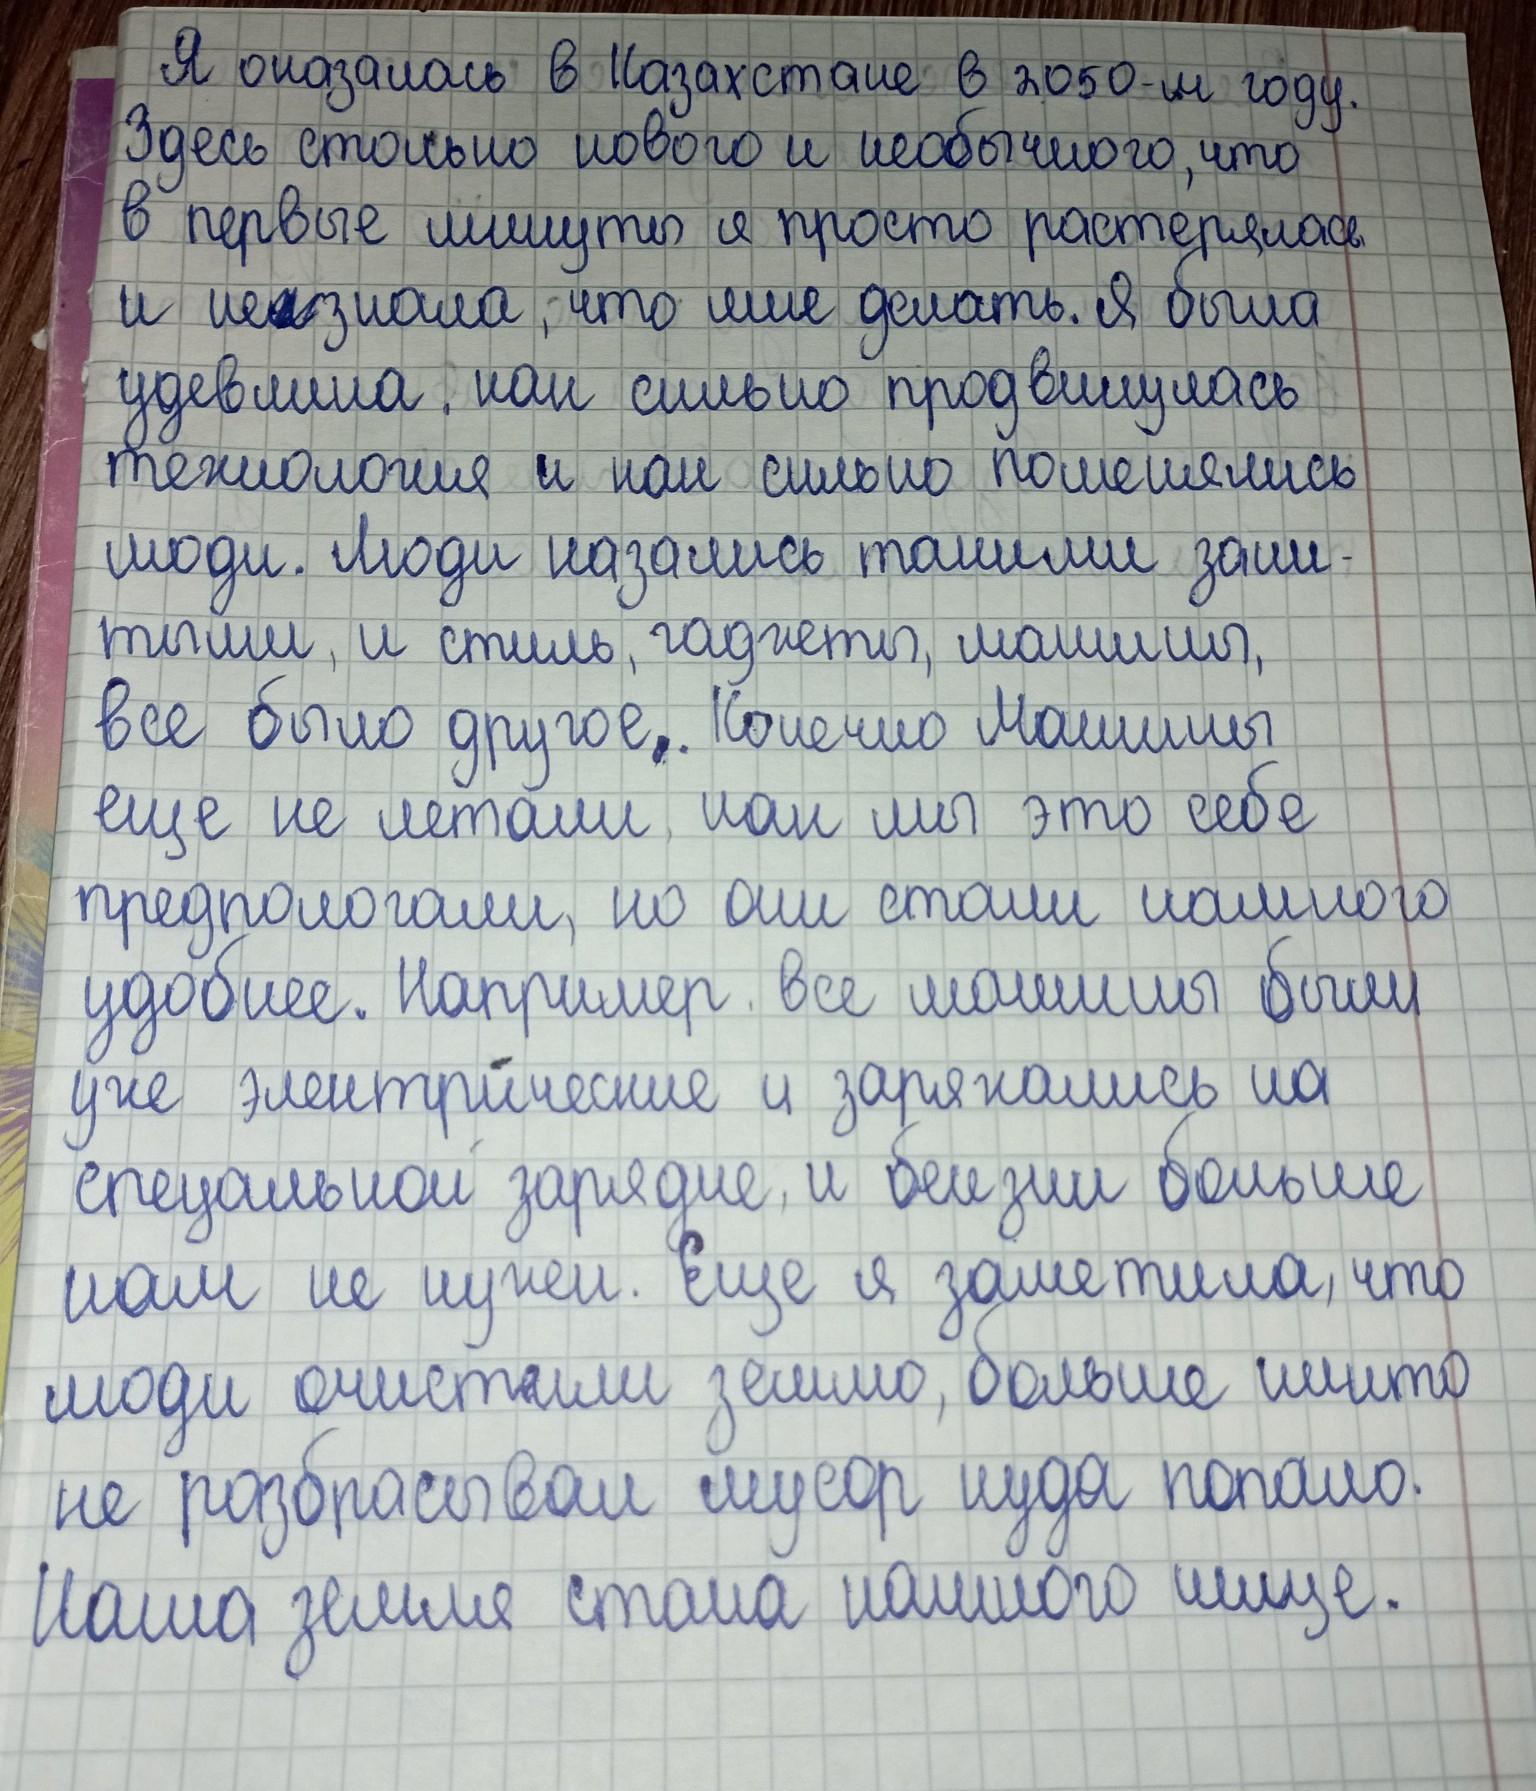 Я оказалась в Казахстане в 2050-м году.
Здесь столько нового и необычного, что
в первые минуты я просто растерялась
и не знала, что мне делать. Я была
удевлина, как сильно продвинулась
технология и как сильно поменялись
люди. Люди казались такими заня-
тыми, и стиль, гаджеты, машины,
все было другое. Конечно Машины
еще не летали, как мы это себе
предпологали, но они стали намного
удобнее. Например, все машины были
уже электрические и заряжались на
спецальной зарядке, и бензин больше
нам не нужен. Еще я заметила, что
люди очистили землю, больше никто
не разбрасывал мусор куда попало.
Наша земля стала намного чище.